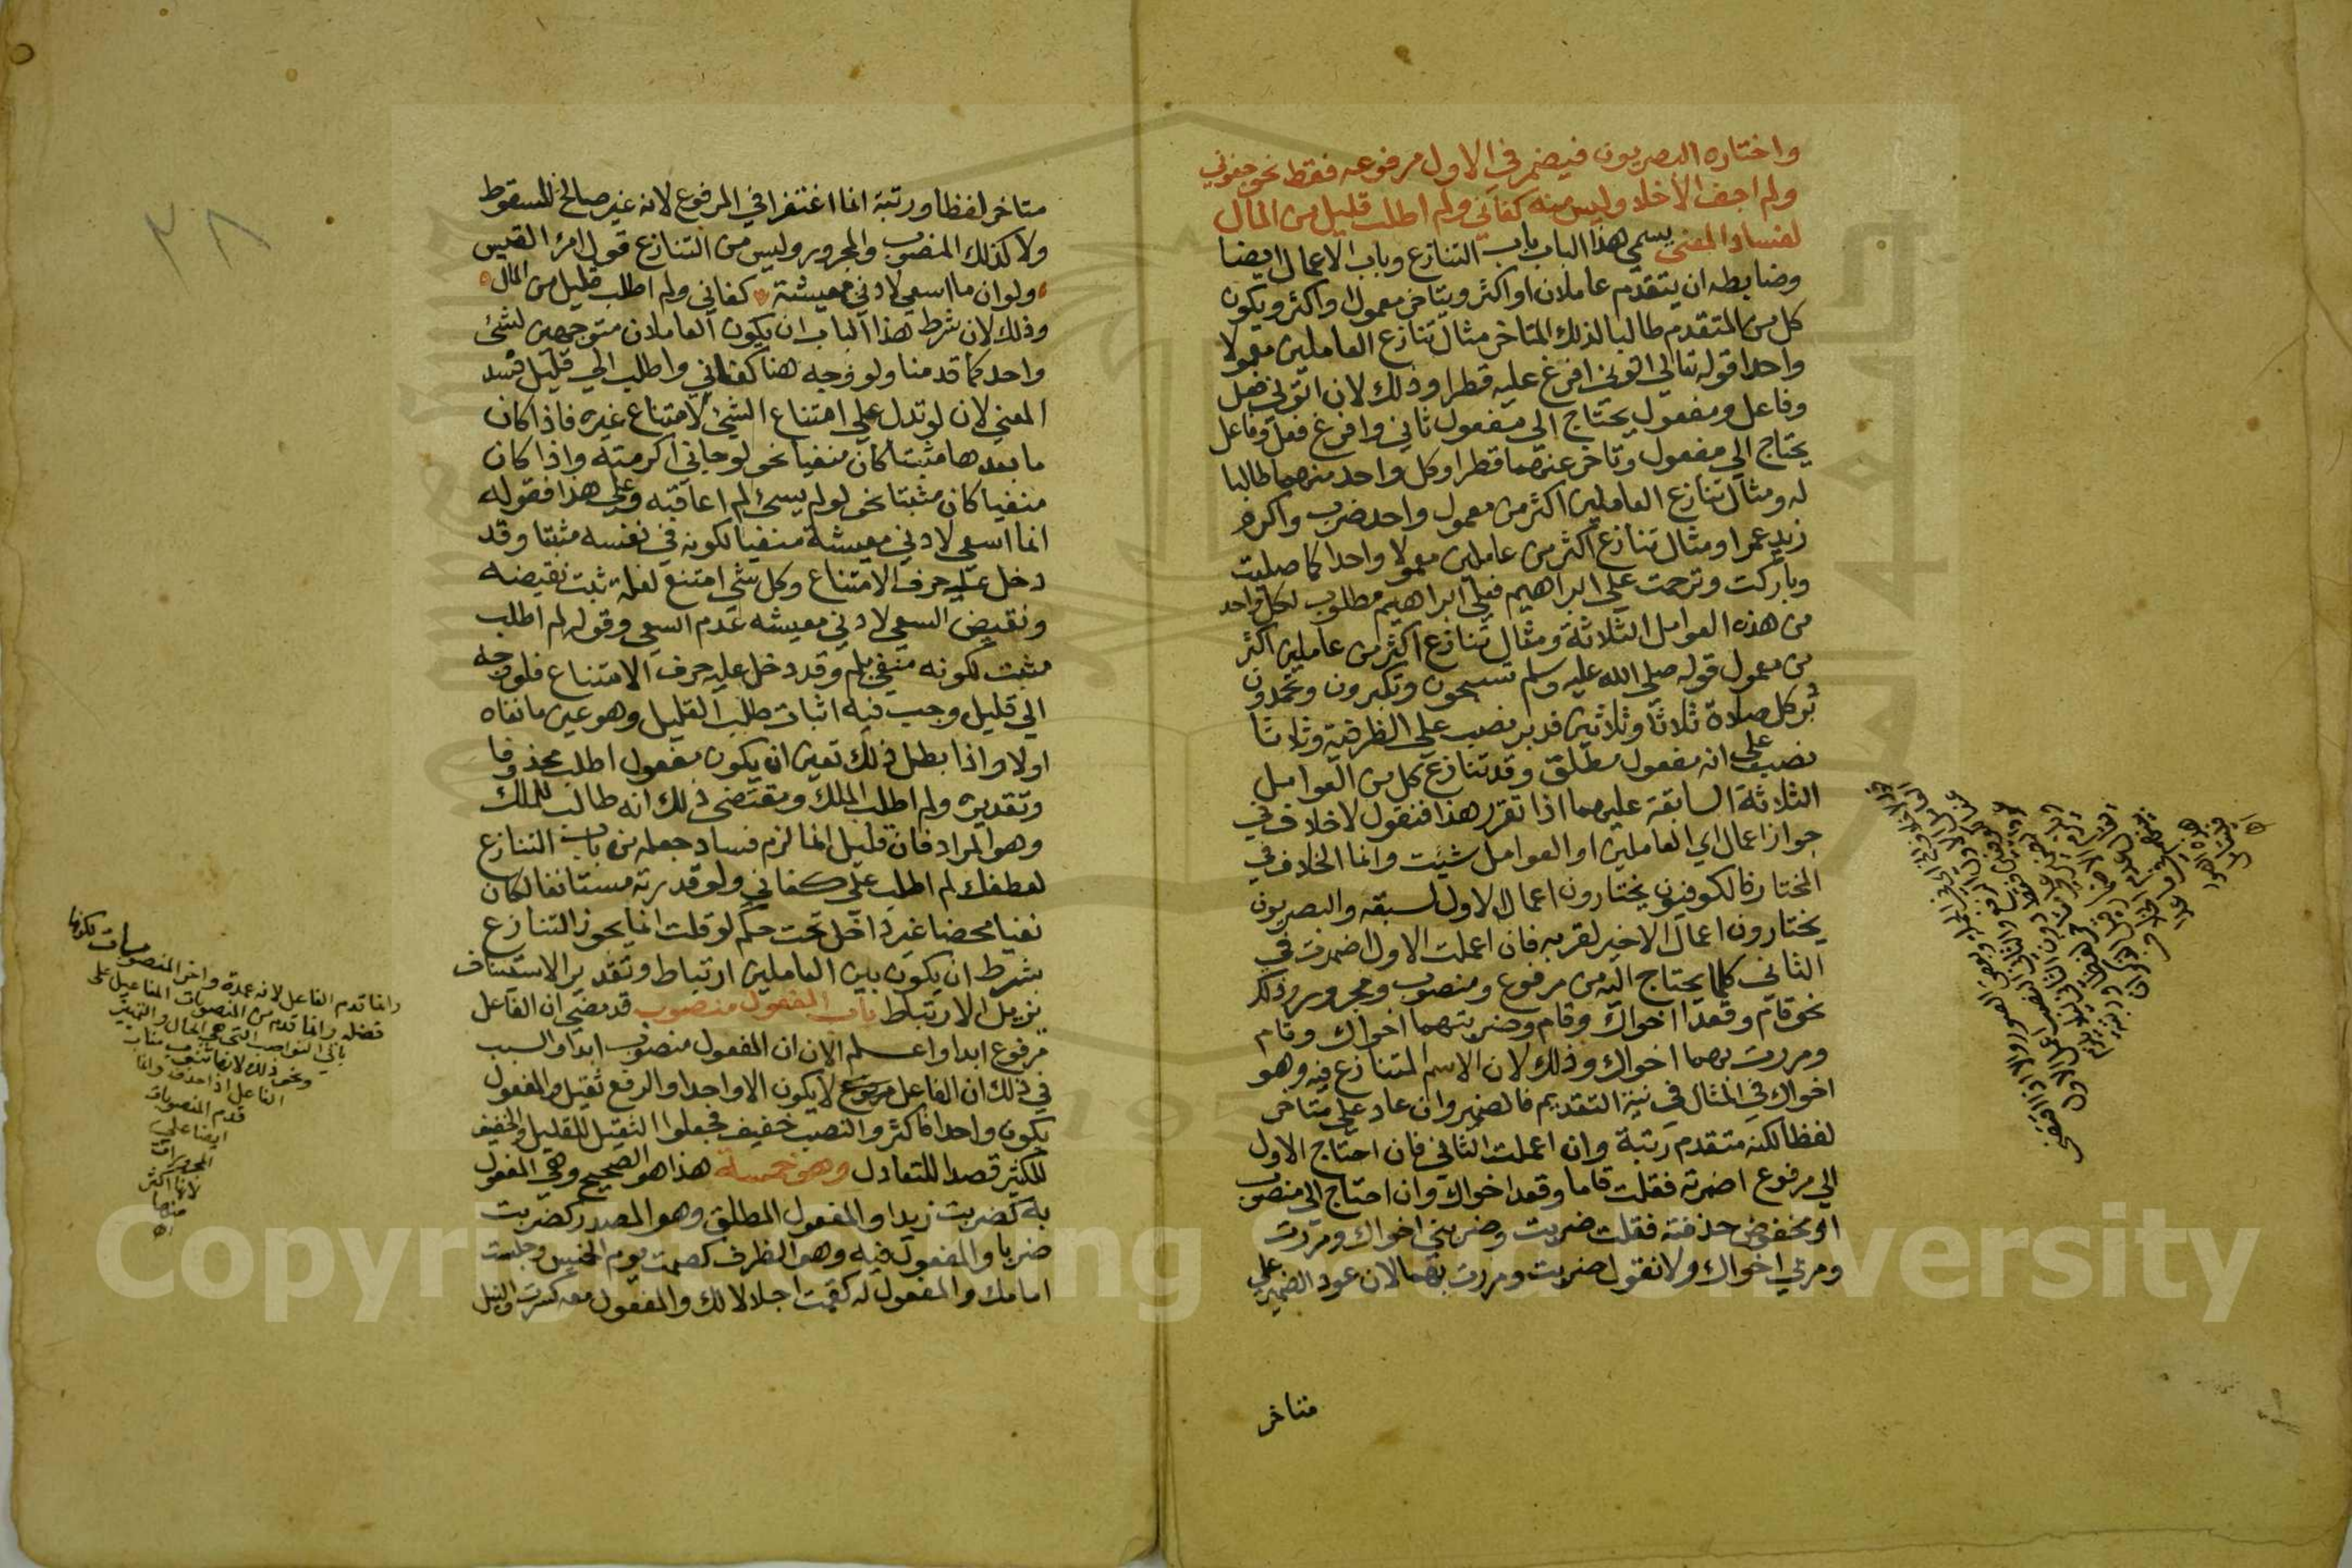 واختاره البصريون فيضمر في الاول مرفوعه فقط نحو جفوني
ولم اجف الاخلا وليس منه كفاني ولم اطلب قليل من المال
لفساد المعنى يسمي هذا الباب باب التنازع وباب الاعمال ايضا
وضابطه ان يتقدم عاملان او اكثر ويتاخر معمول او اكثر ويكون
كل من المتقدم طالبا لذلك المتاخر مثال تنازع العاملين معمولا
واحدا قوله تعالي اتوني افرغ عليه قطرا وذلك لان اتوني فعل
وفاعل ومفعول يحتاج الي مفعول ثاني وافرغ فعل وفاعل
يحتاج الي مفعول وتاخر عنهما قطرا وكل واحد منهما طالبا
له ومثال تنازع العاملين اكثر من معمول واحد ضرب واكرم
زيد عمرا ومثال تنازع اكثر من عاملين معمولا واحدا كما صليت
وباركت وترحمت علي ابراهيم فعلي ابراهيم مطلوب لكل واحد
من هذه العوامل الثلاثة ومثال تنازع اكثر من عاملين اكثر
من معمول قوله صلي الله عليه وسلم تسبحون وتكبرون وتحمدون
دبر كل صلاة ثلاثا وثلاثين فدبر نصب علي الظرفية وثلاثا
نصب علي انه مفعول مطلق وقد تنازع كل من العوامل
الثلاثة السابقة عليهما اذا تقرر هذا فنقول لاخلاف في
جواز اعمال اي العاملين او العوامل شئت وانما الخلاف في
المختار فالكوفيون يختارون اعمال الاول لسبقه والبصريون
يختارون اعمال الاخير لقربه فان اعملت الاول اضمرت في
الثاني كلما يحتاج اليه من مرفوع ومنصوب ومجرور وذلك
نحو قام وقعدا اخواك وقام وضربتهما اخواك وقام
ومررت بهما اخواك وذلك لان الاسم المتنازع فيه وهو
اخواك في المثال في نية التقديم فالضمير وان عاد علي متاخر
لفظا لكنه متقدم رتبة وان اعملت الثاني فان احتاج الاول
الي مرفوع اضمرته فقلت قاما وقعد اخواك وان احتاج الي منصوب
او مخفوض حذفته فقلت ضربت وضربني اخواك ومررت
ومر بي اخواك ولا نقول ضربت ومررت بهما لان عود الضمير علي
متاخر
متاخر لفظا ورتبة انما اغتفر في المرفوع لانه غير صالح للسقوط
ولا كذلك المنصوب والمجرور وليس من التنازع قول امرئ القيس
ولو ان ما اسعي لادني معيشة كفاني ولم اطلب قليل من المال
وذلك لان شرط هذا الباب ان يكون العاملان متوجهين لشئ
واحد كما قدمنا ولو وجه هنا كفاني واطلب الي قليل فسد
المعني لان لو تدل علي امتناع الشئ لامتناع غيره فاذا كان
ما بعدها مثبتا كان منفيا نحو لو جاني اكرمته واذا كان
منفيا كان مثبتا نحو لو لم يسئ لم اعاقبه وعلي هذا فقوله
انما اسعي لادني معيشة منفيا لكونه في نفسه مثبتا وقد
دخل عليه حرف الامتناع وكل شي امتنع لعلة ثبت نقيضه
ونقيض السعي لادني معيشه عدم السعي وقوله لم اطلب
مثبت لكونه منفي بلم وقد دخل عليه حرف الامتناع فلو وجه
الي قليل وجب فيه اثبات طلب القليل وهو عين ما نفاه
اولا واذا بطل ذلك تعين ان يكون مفعول اطلب محذوفا
وتقديره ولم اطلب الملك ومقتضي ذلك انه طالب للملك
وهو المراد فان قليل انما لزم فساد جعله من باب التنازع
لعطفك لم اطلب علي كفاني ولو قدرته مستانفا لكان
نفيا محضا غير داخل تحت حكم لو قلت انما يجوز التنازع
بشرط ان يكون بين العاملين ارتباط وتقدير الاستئناف
يزيل الارتباط باب المفعول منصوب قد مضي ان الفاعل
مرفوع ابدا واعلم الان ان المفعول منصوب ابدا والسبب
في ذلك ان الفاعل لا يكون الا واحدا والرفع ثقيل والمفعول
يكون واحدا فاكثر والنصب خفيف فجعلوا الثقيل للقليل والخفيف
للكثير قصدا للتعادل وهو خمسة هذا هو الصحيح وهي المفعول
به كضربت زيدا والمفعول المطلق وهو المصدر كضربت
ضربا والمفعول فيه وهو الظرف كصمت يوم الخميس وجلست
امامك والمفعول له كقمت اجلالا لك والمفعول معه كسرت والنيل
وانما قدم الفاعل لانه عمدة واخر المنصوبات لكونها
فضله وانما قدم من المنصوبات المفاعيل علي
باقي النواصب التي هي الحال والتمييز
ونحو ذلك لانها تنوب مناب
الفاعل اذا حذف وانما
قدم المنصوبات
ايضا علي
المجرورات
لانها اكثر
منها
اه
٣٨